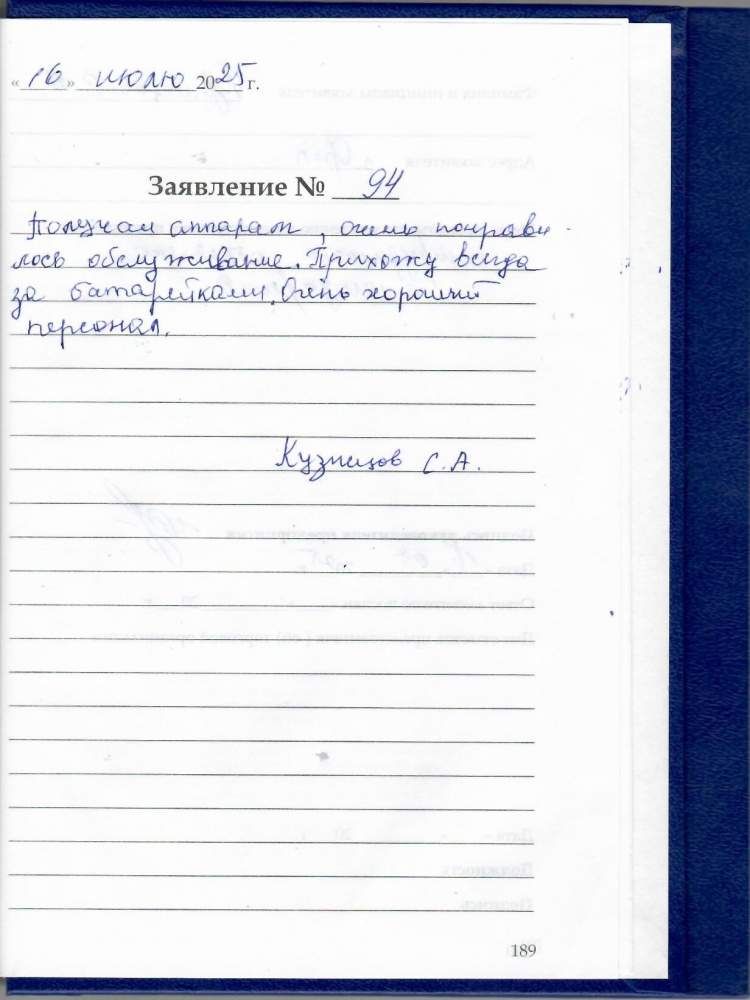 «16» июлю 2025 г.
Заявление № 94
Получал аппарат, очень понрави-
лось обслуживание. Прихожу всегда
за батарейками. Очень хороший
персонал.
Кузнецов С.А.
189